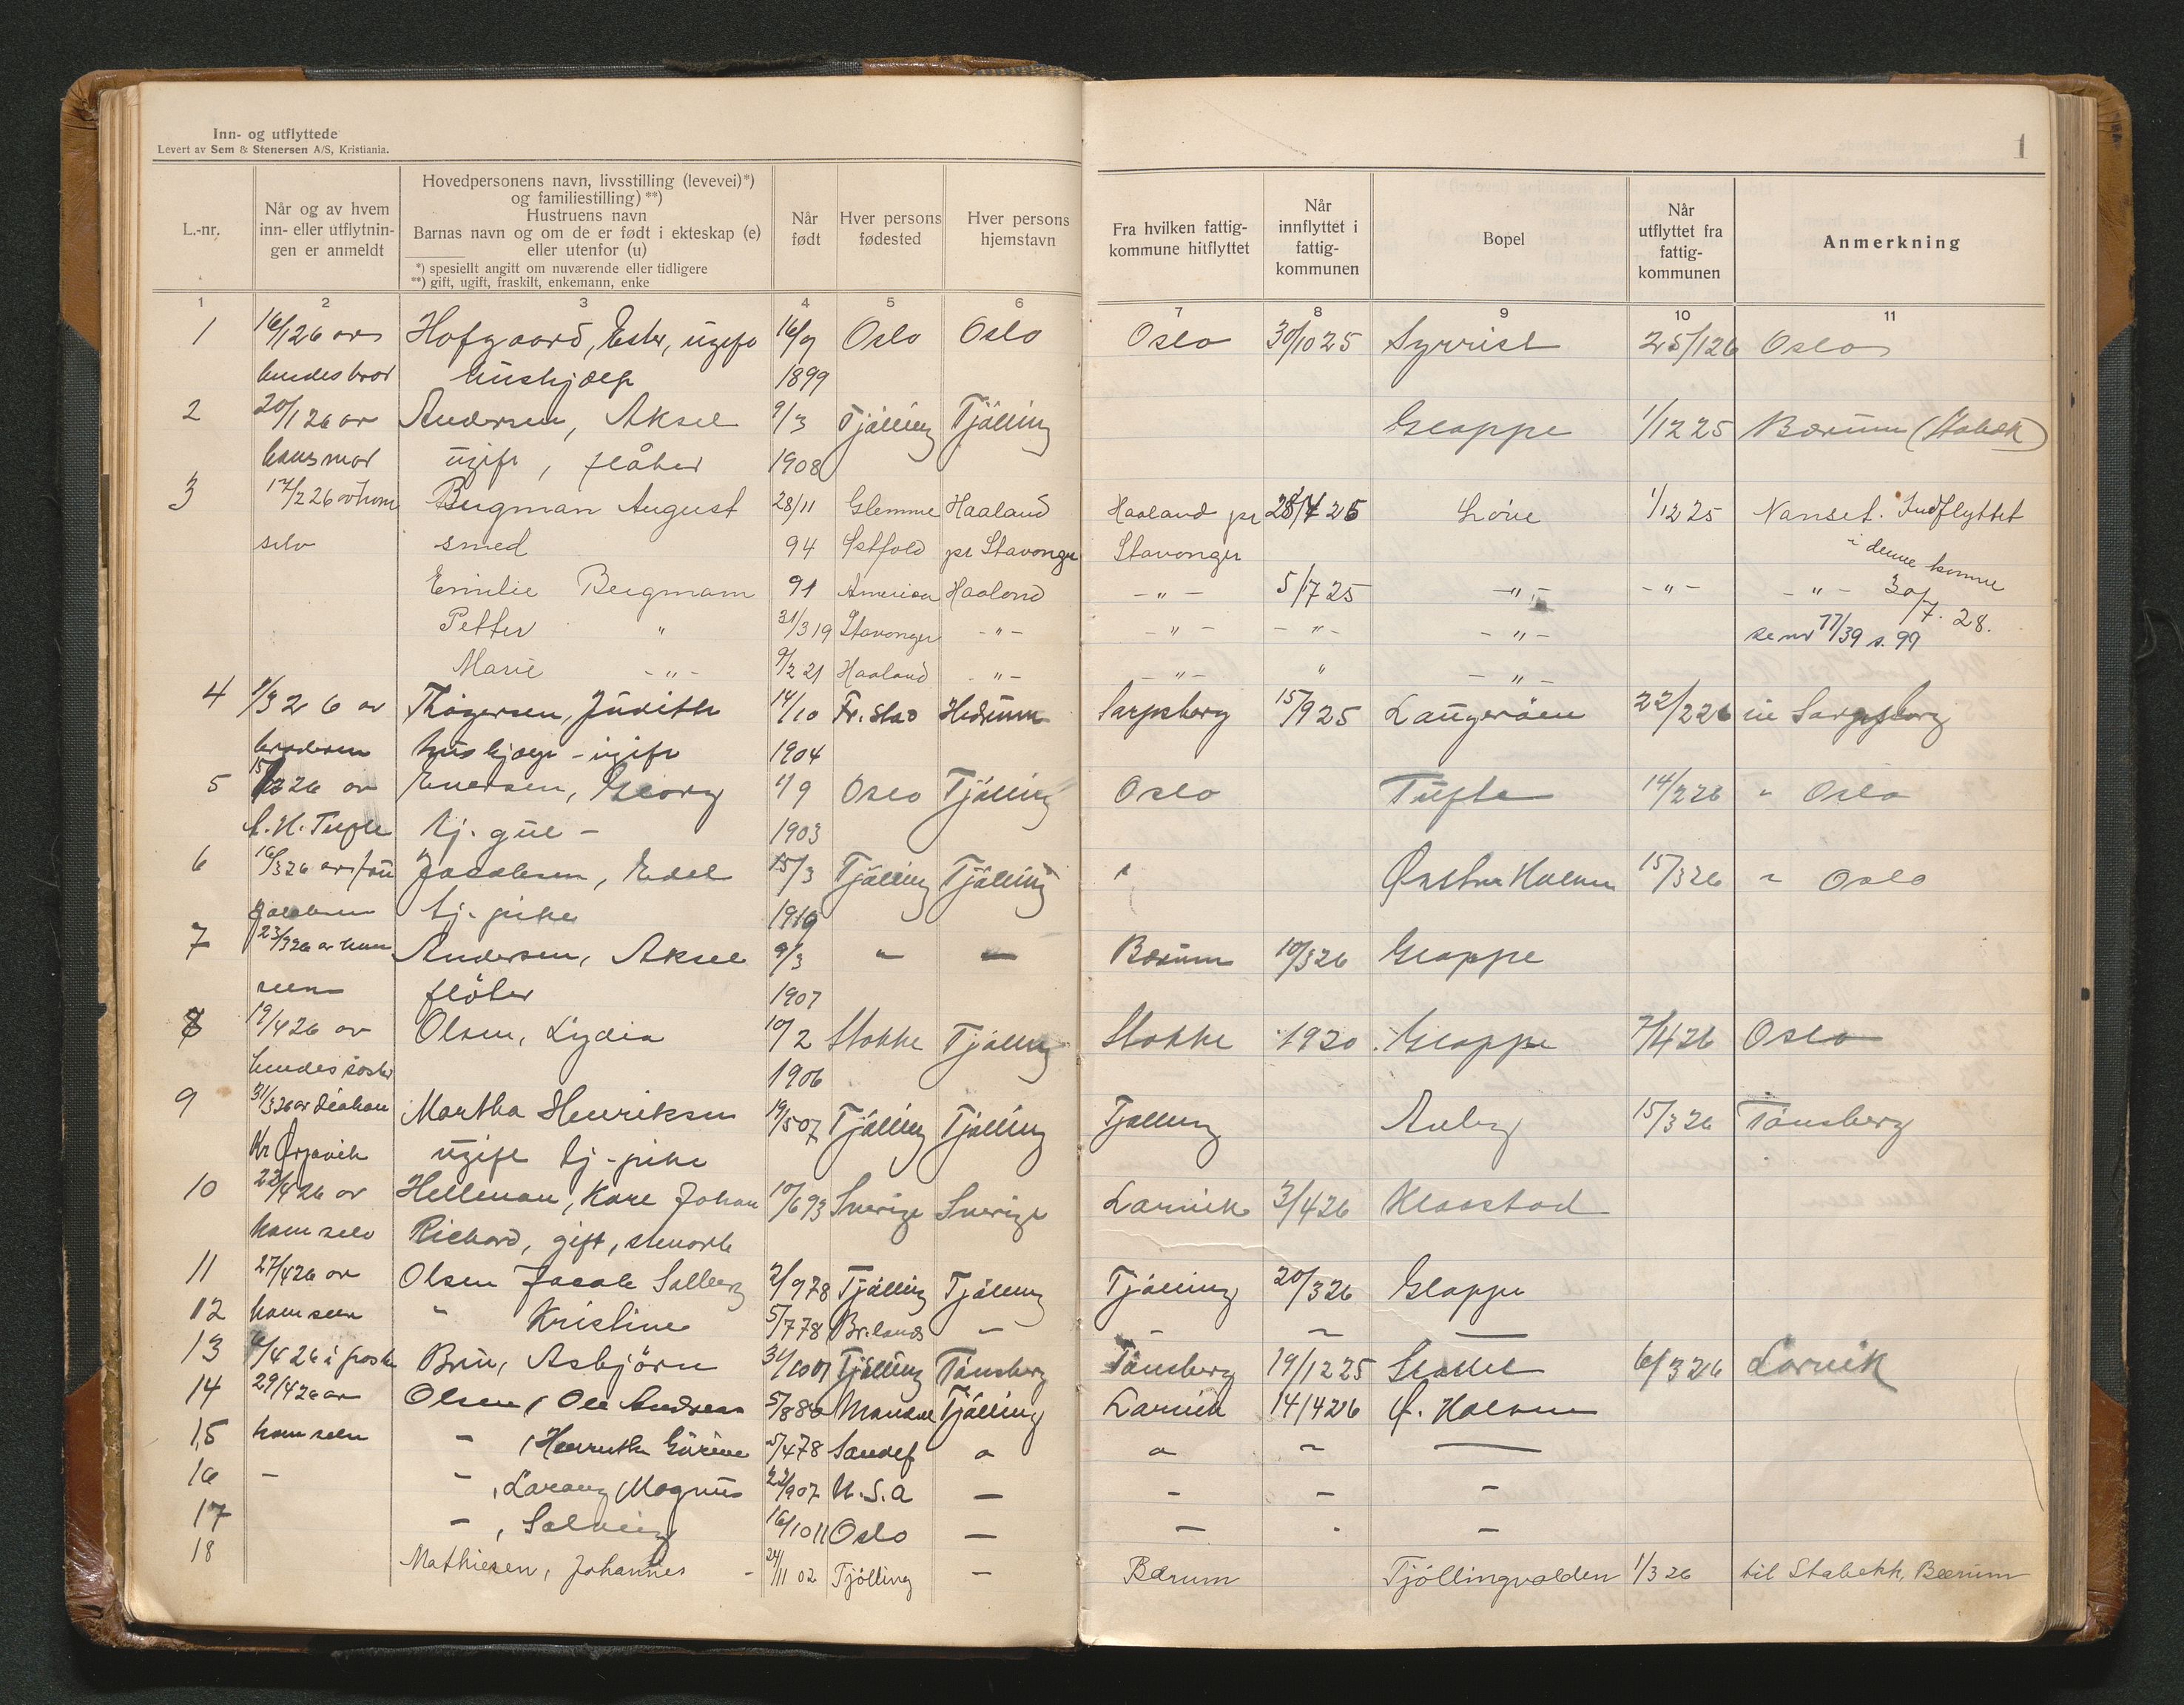 Inn- og utflyttede
Levert av Sem & Stenersen A/S, Kristiania.
1
L.-nr.
Når og av hvem
inn- eller utflytnin-
gen er anmeldt
Hovedpersonens navn, livsstilling (levevei)*)
og familiestilling) **)
Hustruens navn
Barnas navn og om de er født i ekteskap (e)
eller utenfor (u)
*) spesiellt angitt om nuværende eller tidligere
**) gift, ugift, fraskilt, enkemann, enke
Når
født
Hver persons
fødested
Hver persons
hjemstavn
Fra hvilken fattig-
kommune hitflyttet
Når
innflyttet i
fattig-
kommunen
Bopel
Når
utflyttet fra
fattig-
kommunen
Anmerkning
1 2 3 4 5 6 7 8 9 10 11
1 16/1 26 av Hofgaard, Ester, ugift 16/9 Oslo Oslo Oslo 30/10 25 Syrrist 25/1 26 Oslo
hendes bror hushjælp 1899
2 20/1 26 av Andersen, Aksel 9/3 Tjölling Tjölling Gloppe 1/12 25 Bærum (Stabæk)
hans mor ugift, fløter 1908
3 17/2 26 av ham Bergman August 28/11 Glemme Haaland Haaland pr 28/4 25 Löve 1/12 25 Nanset. Indflyttet
selv smed 94 Østfold pr Stavanger Stavanger i denne komme
Emilie Bergmam 91 America Haaland - " - 5/7 25 - " - - " - - " - 30/7. 28.
Petter " 31/3 19 Stavanger - " - - " - - " - - " - se nr 77/39 s. 99
Marie - " - 9/2 21 Haaland - " - - " - " - " -
4 1/3 26 av Thøgersen, Judith 14/10 Fr.stad Hedrum Sarpsborg 15/9 25 Laugeröen 22/2 26 til Sarpsborg
broderen hushjælp - ugift 1904
5 15/2 26 av Evensen, Georg 1/9 Oslo Tjölling Oslo Tufte 14/2 26 " Oslo
A. H. Tufte tj. gut - 1903
6 16/3 26 av fru Jacobsen, Edel 15/3 Tjölling Tjölling " Østre Halsen 15/3 26 " Oslo
Jacobsen tj. pike 1910
7 23/3 26 av ham Andersen, Aksel 9/3 " - Bærum 10/3 26 Gloppe
selv fløter 1907
8 19/4 26 av Olsen, Lydia 10/2 Stokke Tjölling Stokke 1920 Gloppe 7/4 26 Oslo
hendes søster 1906
9 31/3 26 av Martha Henriksen 19/5 07 Tjölling Tjölling Tjölling Auby 15/3 26 Tönsberg
Kr Ørjavik ugift tj-pike
10 22/4 26 av Hellman, Karl Johan 10/6 93 Sverige Sverige Larvik 3/4 26 Klaastad
ham selv Richard, gift, stenarb
11 27/4 26 av Olsen Jacob Solberg 2/9 78 Tjölling Tjölling Tjölling 20/3 26 Gloppe
12 ham selv " Kristine 5/7 78 Br.lanes - - - -
13 6/4 26 i post Bru, Asbjörn 31/10 01 Tjölling Tönsberg Tönsberg 19/12 25 6/3 26 Larvik
14 29/4 26 av Olsen, Ole Andreas 5/8 80 Mandal Tjölling Larvik 14/4 26 Ø. Halsen
15 ham selv - , 5/4 78 Sandef " " - -
16 - - , Magnus 22/9 07 U.S.a - - - -
17 - , Solveig 16/10 11 Oslo - - - -
18 Mathiesen, Johannes - 24/11 02 Tjölling - Bærum Tjöllingvolden 1/3 26 til Stabekk, Bærum